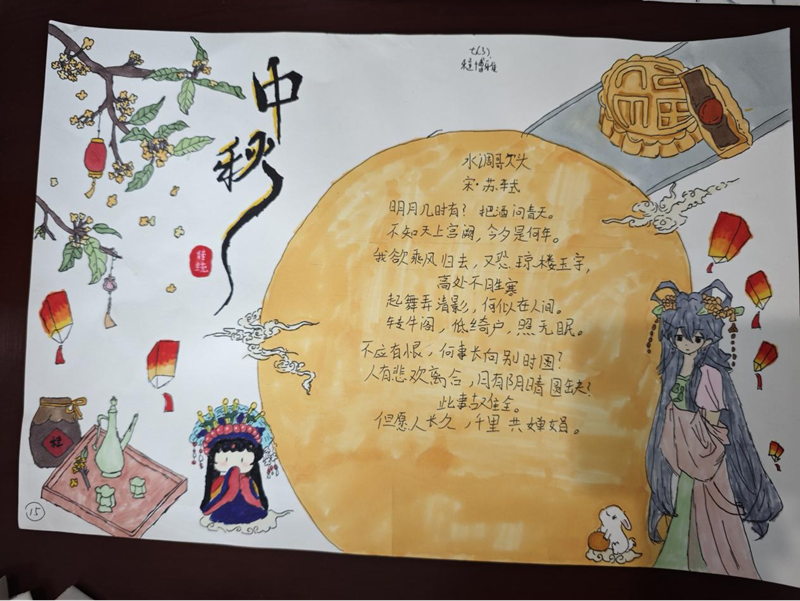 七(3)
中秋
传统
水调歌头
宋·苏轼
明月几时有？把酒问青天。
不知天上宫阙，今夕是何年。
我欲乘风归去，又恐琼楼玉宇，
高处不胜寒
起舞弄清影，何似在人间。
转朱阁，低绮户，照无眠。
不应有恨，何事长向别时圆？
人有悲欢离合，月有阴晴圆缺？
此事古难全。
但愿人长久，千里共婵娟。
15